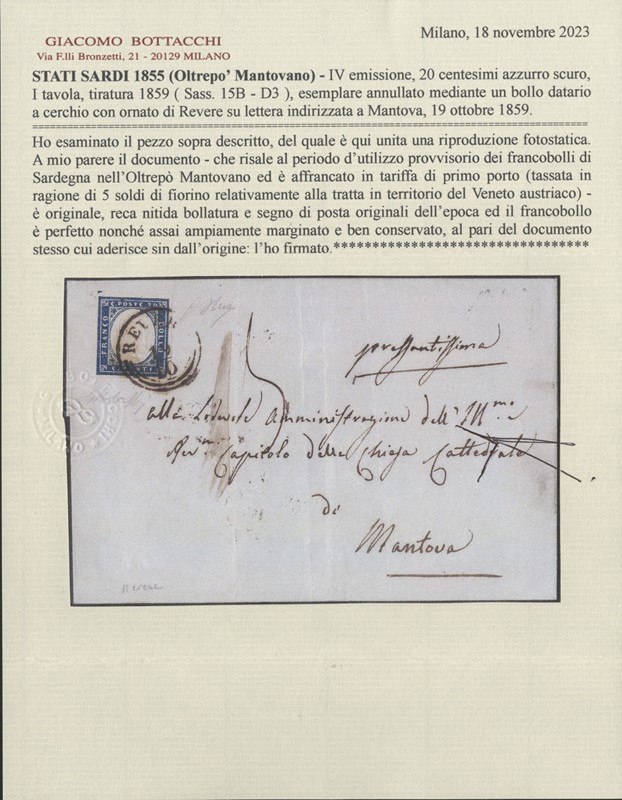 Milano, 18 novembre 2023
GIACOMO BOTTACCHI
Via F.lli Bronzetti, 21 - 20129 MILANO
STATI SARDI 1855 (Oltrepo' Mantovano) - IV emissione, 20 centesimi azzurro scuro,
I tavola, tiratura 1859 ( Sass. 15B - D3 ), esemplare annullato mediante un bollo datario
a cerchio con ornato di Revere su lettera indirizzata a Mantova, 19 ottobre 1859.
Ho esaminato il pezzo sopra descritto, del quale è qui unita una riproduzione fotostatica.
A mio parere il documento - che risale al periodo d'utilizzo provvisorio dei francobolli di
Sardegna nell'Oltrepò Mantovano ed è affrancato in tariffa di primo porto (tassata in
ragione di 5 soldi di fiorino relativamente alla tratta in territorio del Veneto austriaco) -
è originale, reca nitida bollatura e segno di posta originali dell'epoca ed il francobollo
è perfetto nonché assai ampiamente marginato e ben conservato, al pari del documento
stesso cui aderisce sin dall'origine: l'ho firmato.*********************************
C. POSTE 20
FRANCO
BOLLO
REV
5
pressantissima
alla Lodevole Amministrazione dell' Ill.mo
Rev.m Capitolo della Chiesa Cattedrale
di
Mantova
Revere
MILANO